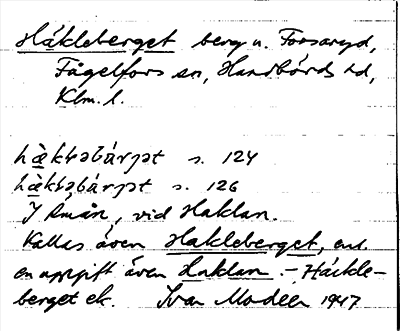 Häkleberget berg n. Forsaryd,
Fågelfors sn, Handbörds hd,
Klm. l.
s. 124
s. 126
I Åmån, vid Haklan.
Kallas även Hakleberget, enl.
en uppgift även Haklan. – Häckle-
berget ek. Ivar Modéer 1947